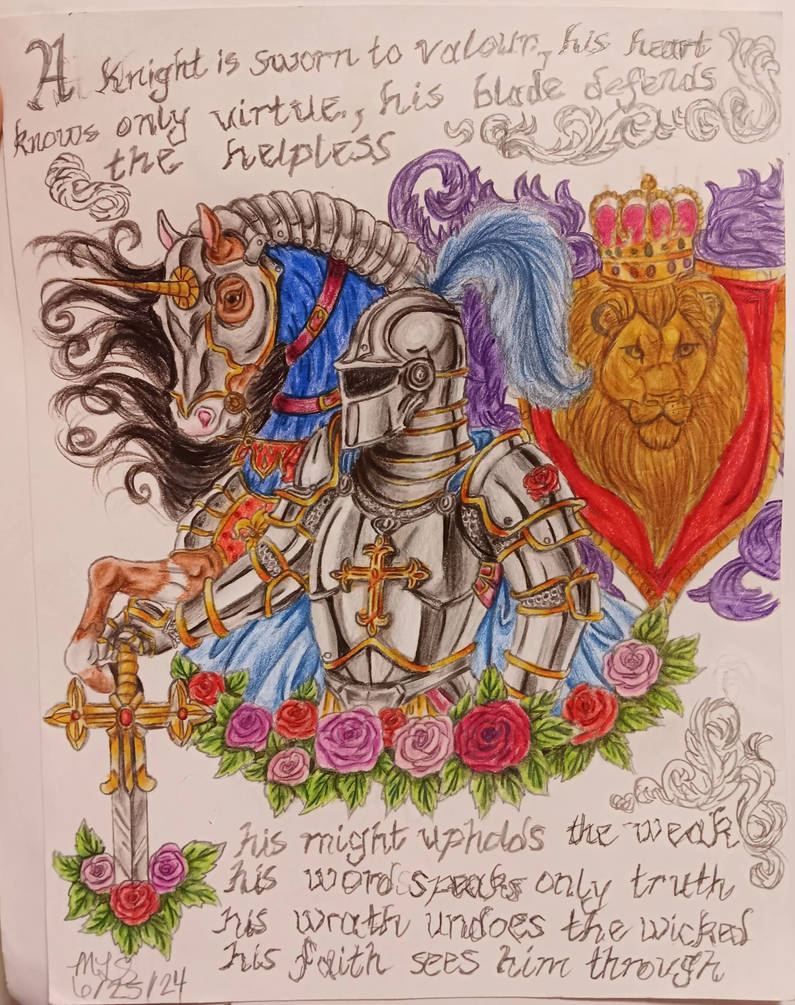 A Knight is sworn to valour, his heart
knows only virtue, his blade defends
the helpless
his might upholds the weak
his word speaks only truth
his wrath undoes the wicked
his faith sees him through
MLS
6/25/24